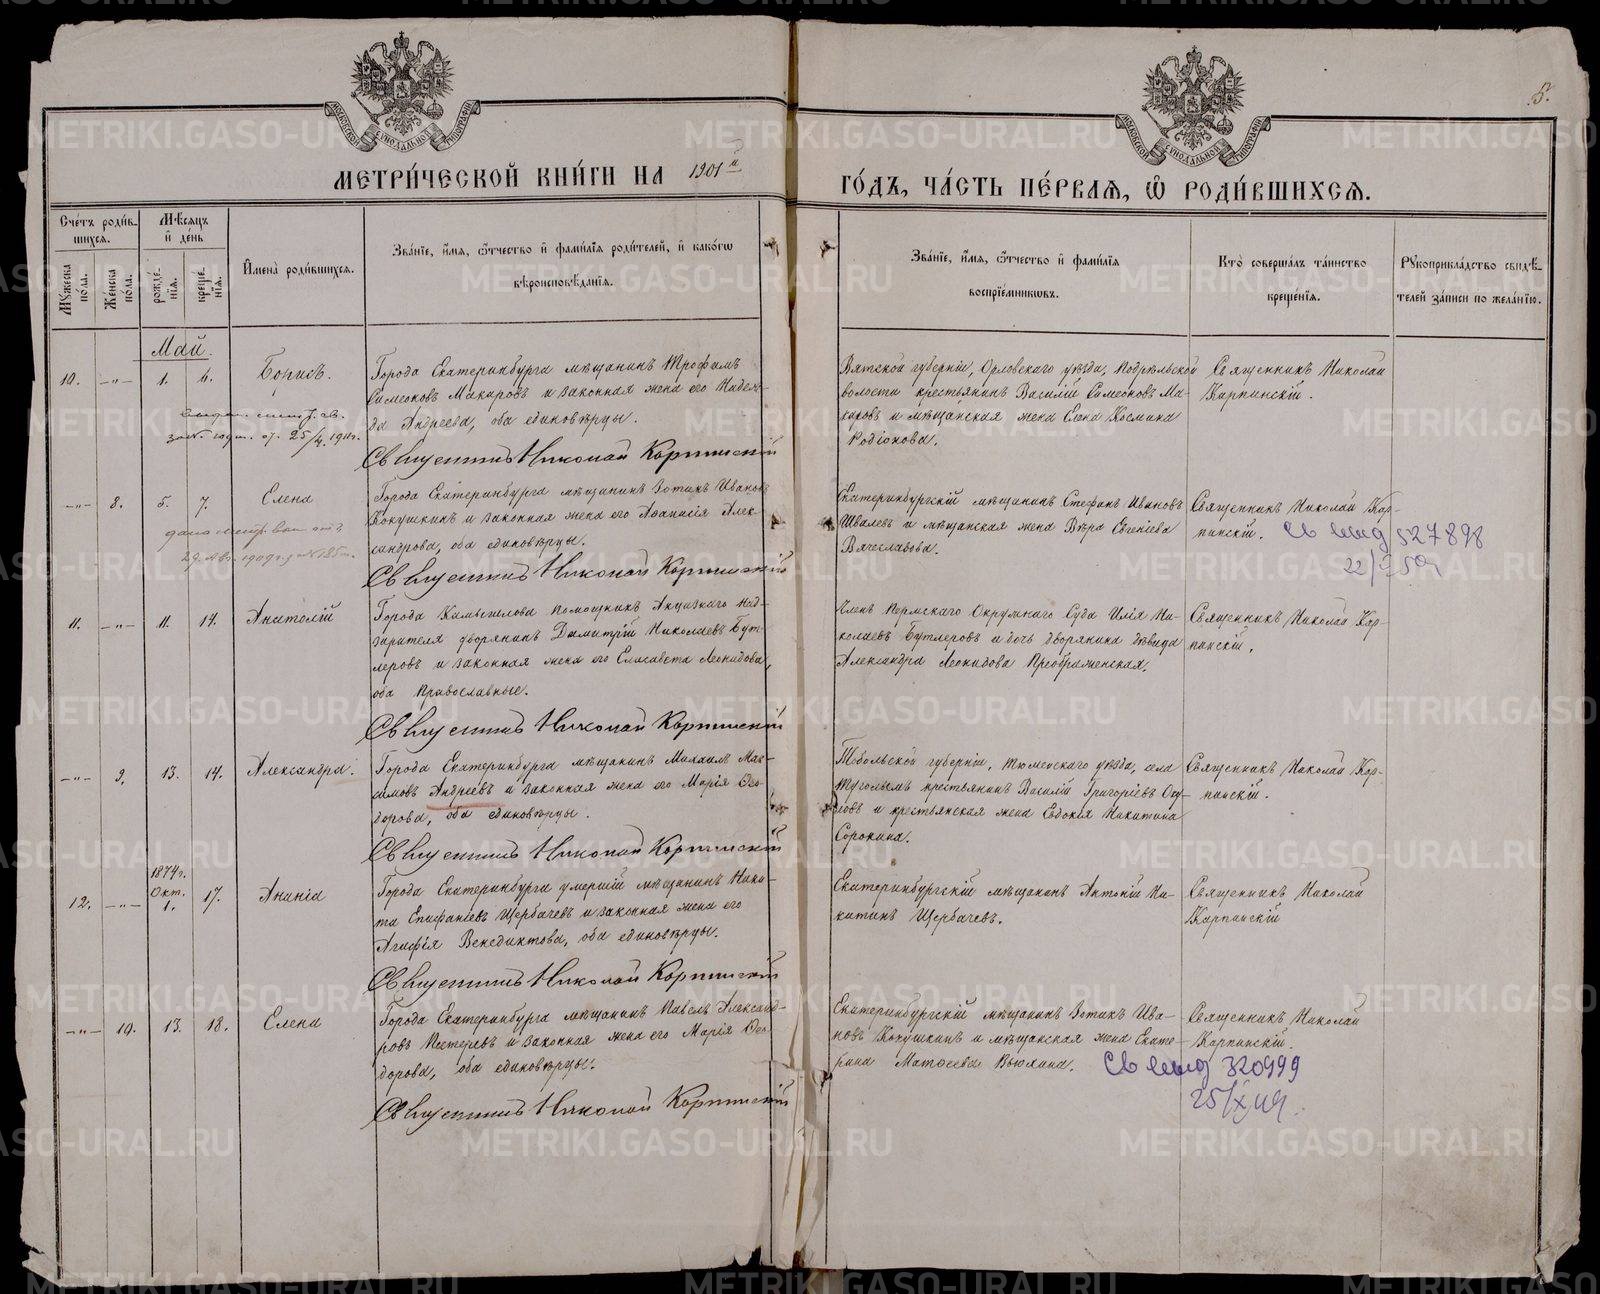 5.
МОСКОВСКОЙ СѴНОДАЛЬНОЙ ТИПОГРАФІИ
МОСКОВСКОЙ СѴНОДАЛЬНОЙ ТИПОГРАФІИ
МЕТРИ́ЧЕСКОЙ КНИ́ГИ НА 1901й
ГО́ДЪ, ЧА́СТЬ ПЕ́РВАѦ, Ѡ҆ РОДИ́ВШИХСѦ.
Сче́тъ роди́в-
шихсѧ.
Мѣ́сѧцъ
и҆ де́нь
Мꙋ́жеска по́ла.
Же́нска по́ла.
рожде́-
нїѧ.
креще́-
нїѧ.
И҆мена̀ роди́вшихсѧ.
Зва́нїе, и҆́мѧ, ѻ҆́тчество и҆ фами́лїѧ роди́телей, и҆ како́гѡ
вѣроисповѣ́данїѧ.
Зва́нїе, и҆́мѧ, ѻ҆́тчество и҆ фами́лїѧ
воспрїе́мникѡвъ.
Кто̀ соверша́лъ та́инство
креще́нїѧ.
Рꙋкоприкла́дство свидѣ́-
телей за́писи по жела́нїю.
Май.
10. —"— 1. 6. Борисъ.
Города Екатеринбурга мѣщанинъ Трофимъ
Симеоновъ Макаровъ и законная жена его Надеж-
да Андреева, оба единовѣрцы.
Священникъ Николай Карпинскій
25/4. 1911г.
Вятской губерніи, Орловскаго уѣзда, Подрѣльской
волости крестьянинъ Василій Симеоновъ Ма-
каровъ и мѣщанская жена Елена Космина
Родіонова.
Священникъ Николай
Карпинскій.
—"— 8. 5. 7. Елена
Города Екатеринбурга мѣщанинъ Зотикъ Ивановъ
Кокушкинъ и законная жена его Аѳанасія Алек-
сандрова, оба единовѣрцы.
Священникъ Николай Карпинскій
Екатеринбургскій мѣщанинъ Стефанъ Ивановъ
Швалевъ и мѣщанская жена Вѣра Евгеніева
Вячеславова.
Священникъ Николай Кар-
пинскій. Св 527898
11. —"— 11. 14. Анатолій
Города Камышлова Помощникъ Акцизнаго Над-
зирателя дворянинъ Димитрій Николаевъ Бут-
леровъ и законная жена его Елисавета Леонидова,
оба Православные.
Священникъ Николай Карпинскій
Членъ Пермскаго Окружнаго Суда Илія Ни-
колаевъ Бутлеровъ и дочь дворянина дѣвица
Александра Леонидова Преображенская.
Священникъ Николай Кар-
пинскій.
—"— 9. 13. 14. Александра.
Города Екатеринбурга мѣщанинъ Михаилъ Мак-
симовъ Андреевъ и законная жена его Марія Ѳео-
дорова, оба единовѣрцы.
Священникъ Николай Карпинскій
Тобольской губерніи, Тюменскаго уѣзда, села
крестьянинъ Василій Григоріевъ
и крестьянская жена Евдокія Никитина
Сорокина.
Священникъ Николай Кар-
пинскій.
12. —"— 1874г. Окт. 1. 17. Ананіа
Города Екатеринбурга умершій мѣщанинъ Ники-
та Епифаніевъ Щербачевъ и законная жена его
Агафія Венедиктова, оба единовѣрцы.
Священникъ Николай Карпинскій
Екатеринбургскій мѣщанинъ Антоній Ни-
китинъ Щербачевъ.
Священникъ Николай
Карпинскій
—"— 10. 13. 18. Елена
Города Екатеринбурга мѣщанинъ Павелъ Александ-
ровъ Пестеревъ и законная жена его Марія Ѳео-
дорова, оба единовѣрцы.
Священникъ Николай Карпинскій
Екатеринбургскій мѣщанинъ Зотикъ Ива-
новъ Кокушкинъ и мѣщанская жена Екате-
рина Матѳеева Вьюхина.
Священникъ Николай
Карпинскій.
Св 320999
METRIKI.GASO-URAL.RU